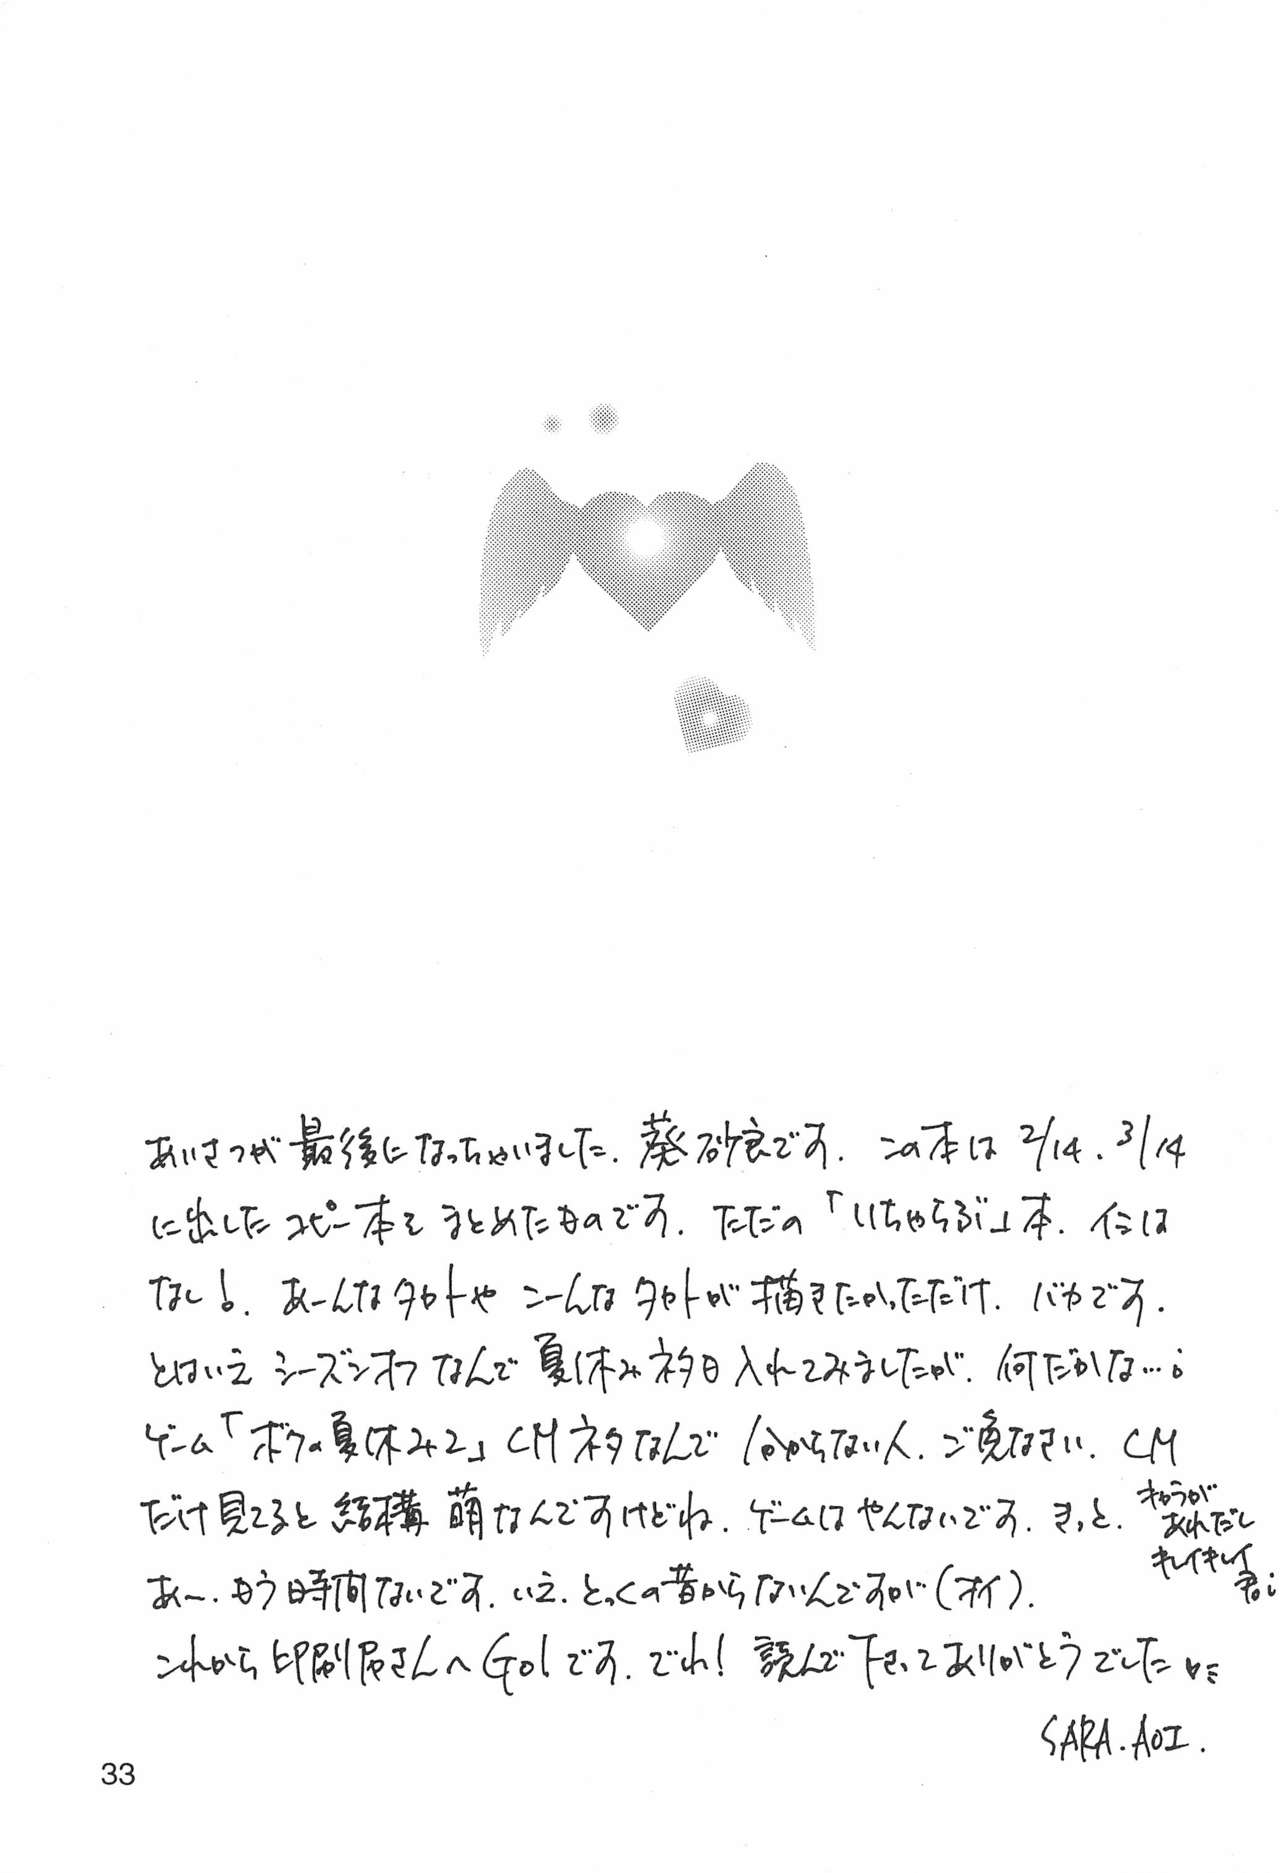 あいさつが最後になっちゃいました. 葵砂良です. この本は 2/14. 3/14
に出したコピー本をまとめたものです. ただの「いちゃらぶ」本. イミは
なし!. あーんなタカトや こーんなタカトが描きたかっただけ. バカです.
とはいえ シーズンオフなんで 夏休みネタも入れてみましたが. 何だかな…;
ゲーム「ボクの夏休み2」CMネタなんで 分からない人. ご免なさい. CM
だけ見てると 結構 萌なんですけどね. ゲームはやんないです. きっと.
がわがあれだし
キレイキレイ君;
あ〜. もう時間ないです. いえ. とっくの昔からないんですが(オイ).
これから印刷屋さんへGO!です. でわ! 読んで下さってありがとうでした
SARA. AOI.
33